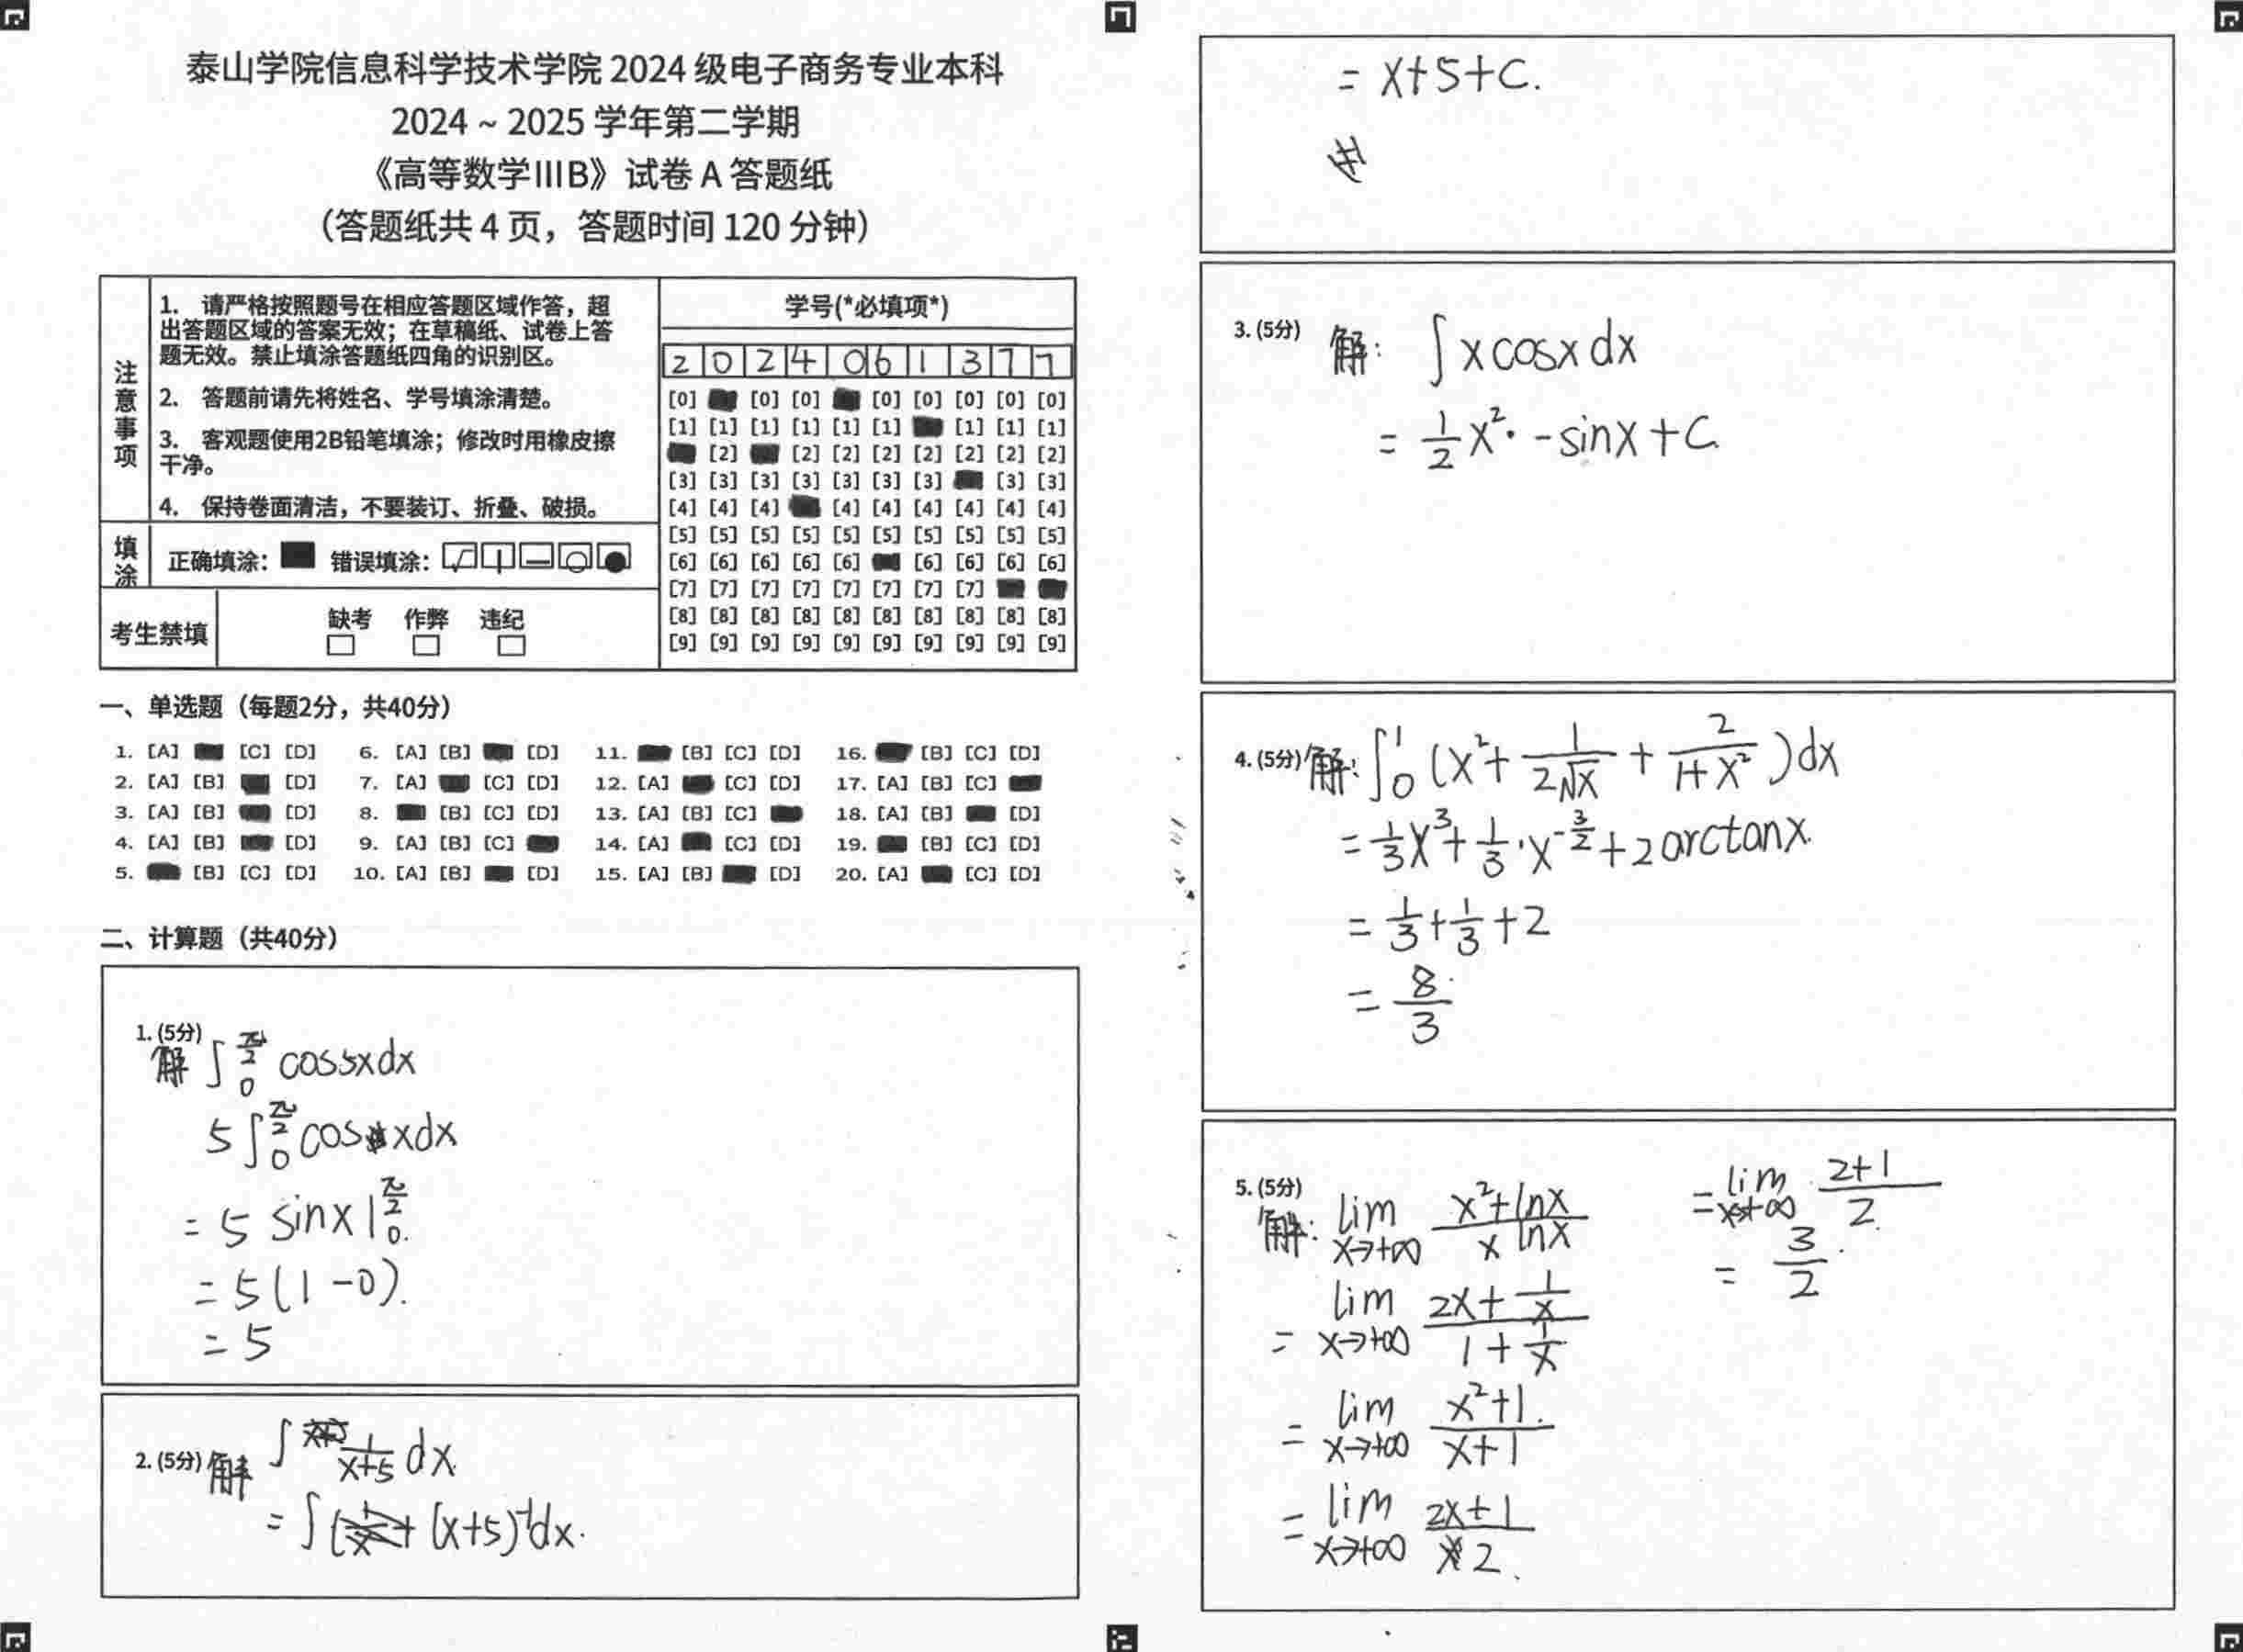 泰山学院信息科学技术学院 2024 级电子商务专业本科
2024 ~ 2025 学年第二学期
《高等数学ⅢB》试卷 A 答题纸
（答题纸共 4 页，答题时间 120 分钟）
注意事项
1. 请严格按照题号在相应答题区域作答，超
出答题区域的答案无效；在草稿纸、试卷上答
题无效。禁止填涂答题纸四角的识别区。
2. 答题前请先将姓名、学号填涂清楚。
3. 客观题使用2B铅笔填涂；修改时用橡皮擦
干净。
4. 保持卷面清洁，不要装订、折叠、破损。
填涂
正确填涂： 错误填涂：
考生禁填
缺考 作弊 违纪
学号(*必填项*)
2 0 2 4 0 6 1 3 7 7
[0] [0] [0] [0] [0] [0] [0] [0]
[1] [1] [1] [1] [1] [1] [1] [1] [1]
[2] [2] [2] [2] [2] [2] [2] [2]
[3] [3] [3] [3] [3] [3] [3] [3] [3]
[4] [4] [4] [4] [4] [4] [4] [4] [4]
[5] [5] [5] [5] [5] [5] [5] [5] [5] [5]
[6] [6] [6] [6] [6] [6] [6] [6] [6]
[7] [7] [7] [7] [7] [7] [7] [7]
[8] [8] [8] [8] [8] [8] [8] [8] [8] [8]
[9] [9] [9] [9] [9] [9] [9] [9] [9] [9]
一、单选题（每题2分，共40分）
1. [A] [C] [D] 6. [A] [B] [D] 11. [B] [C] [D] 16. [B] [C] [D]
2. [A] [B] [D] 7. [A] [C] [D] 12. [A] [C] [D] 17. [A] [B] [C]
3. [A] [B] [D] 8. [B] [C] [D] 13. [A] [B] [C] 18. [A] [B] [D]
4. [A] [B] [D] 9. [A] [B] [C] 14. [A] [C] [D] 19. [B] [C] [D]
5. [B] [C] [D] 10. [A] [B] [D] 15. [A] [B] [D] 20. [A] [C] [D]
二、计算题（共40分）
1. (5分)
解 ∫₀^(π/2) cos5xdx
5 ∫₀^(π/2) cos xdx
= 5 sinx |₀^(π/2)
= 5(1-0).
= 5
2. (5分) 解 ∫ 1/(x+5) dx.
= ∫ (x+5)⁻¹dx.
= x+5+C.
3. (5分) 解: ∫ x cosx dx
= 1/2 x²· -sinx + C.
4. (5分) 解: ∫₀¹ (x² + 1/(2√x) + 2/(1+x²)) dx
= 1/3 x³ + 1/3 · x^(-3/2) + 2 arctanx.
= 1/3 + 1/3 + 2
= 8/3
5. (5分)
解: lim x→+∞ (x²+lnx)/(x lnx)
= lim x→+∞ (2x + 1/x)/(1 + 1/x)
= lim x→+∞ (x²+1)/(x+1)
= lim x→+∞ (2x+1)/2.
= lim x→+∞ (2+1)/2.
= 3/2.